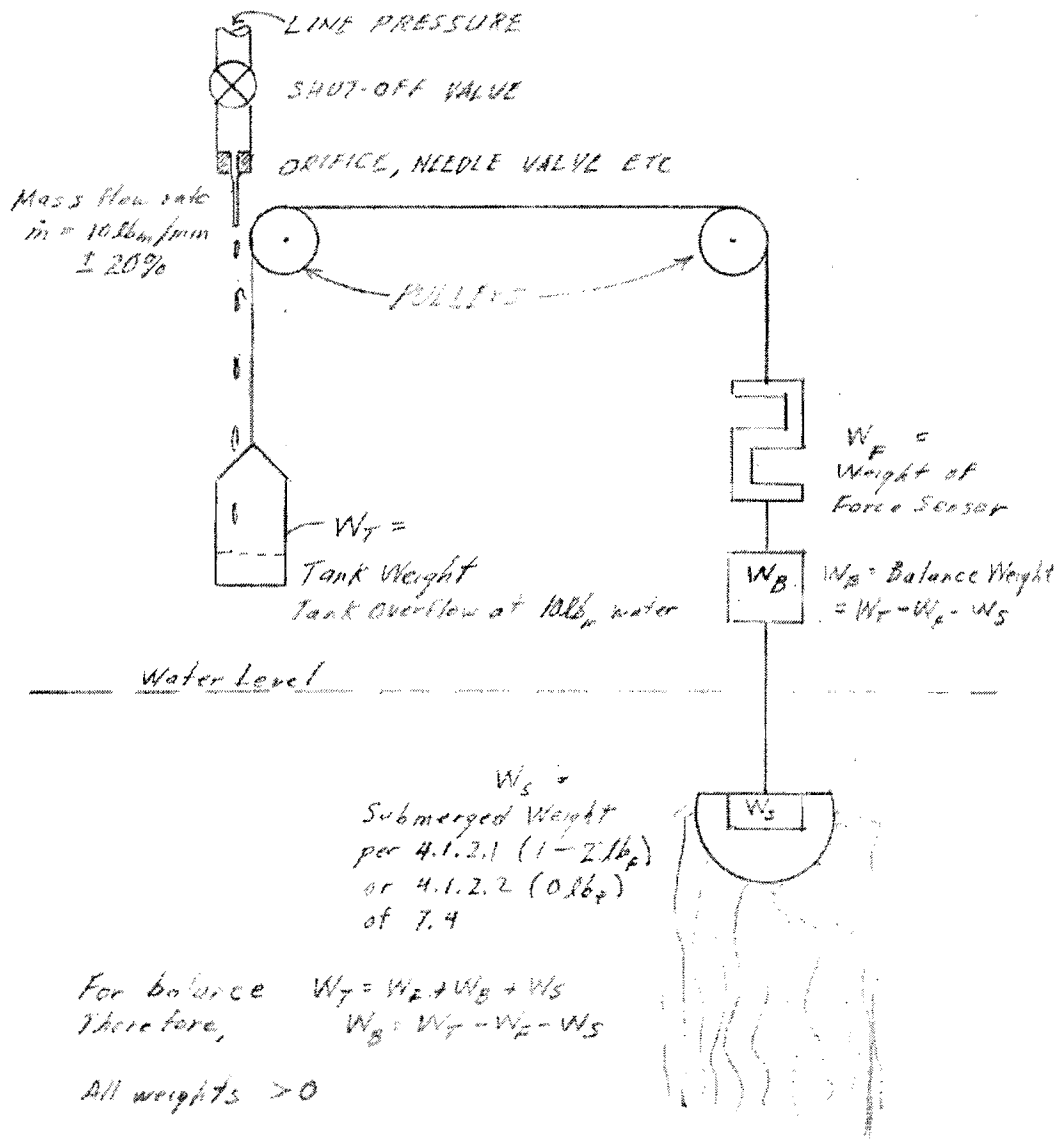 LINE PRESSURE
SHUT-OFF VALVE
ORIFICE, NEEDLE VALVE ETC
Mass flow rate
ṁ = 10 lbₘ/min
± 20%
PULLEYS
W_F =
Weight of
Force Sensor
W_T =
Tank Weight
Tank Overflow at 10 lb_F water
W_B
W_B = Balance Weight
= W_T - W_F - W_S
Water Level
W_S =
Submerged Weight
per 4.1.2.1 (1-2 lb_F)
or 4.1.2.2 (0 lb_F)
of 7.4
W_S
For balance W_T = W_F + W_B + W_S
Therefore, W_B = W_T - W_F - W_S
All weights > 0